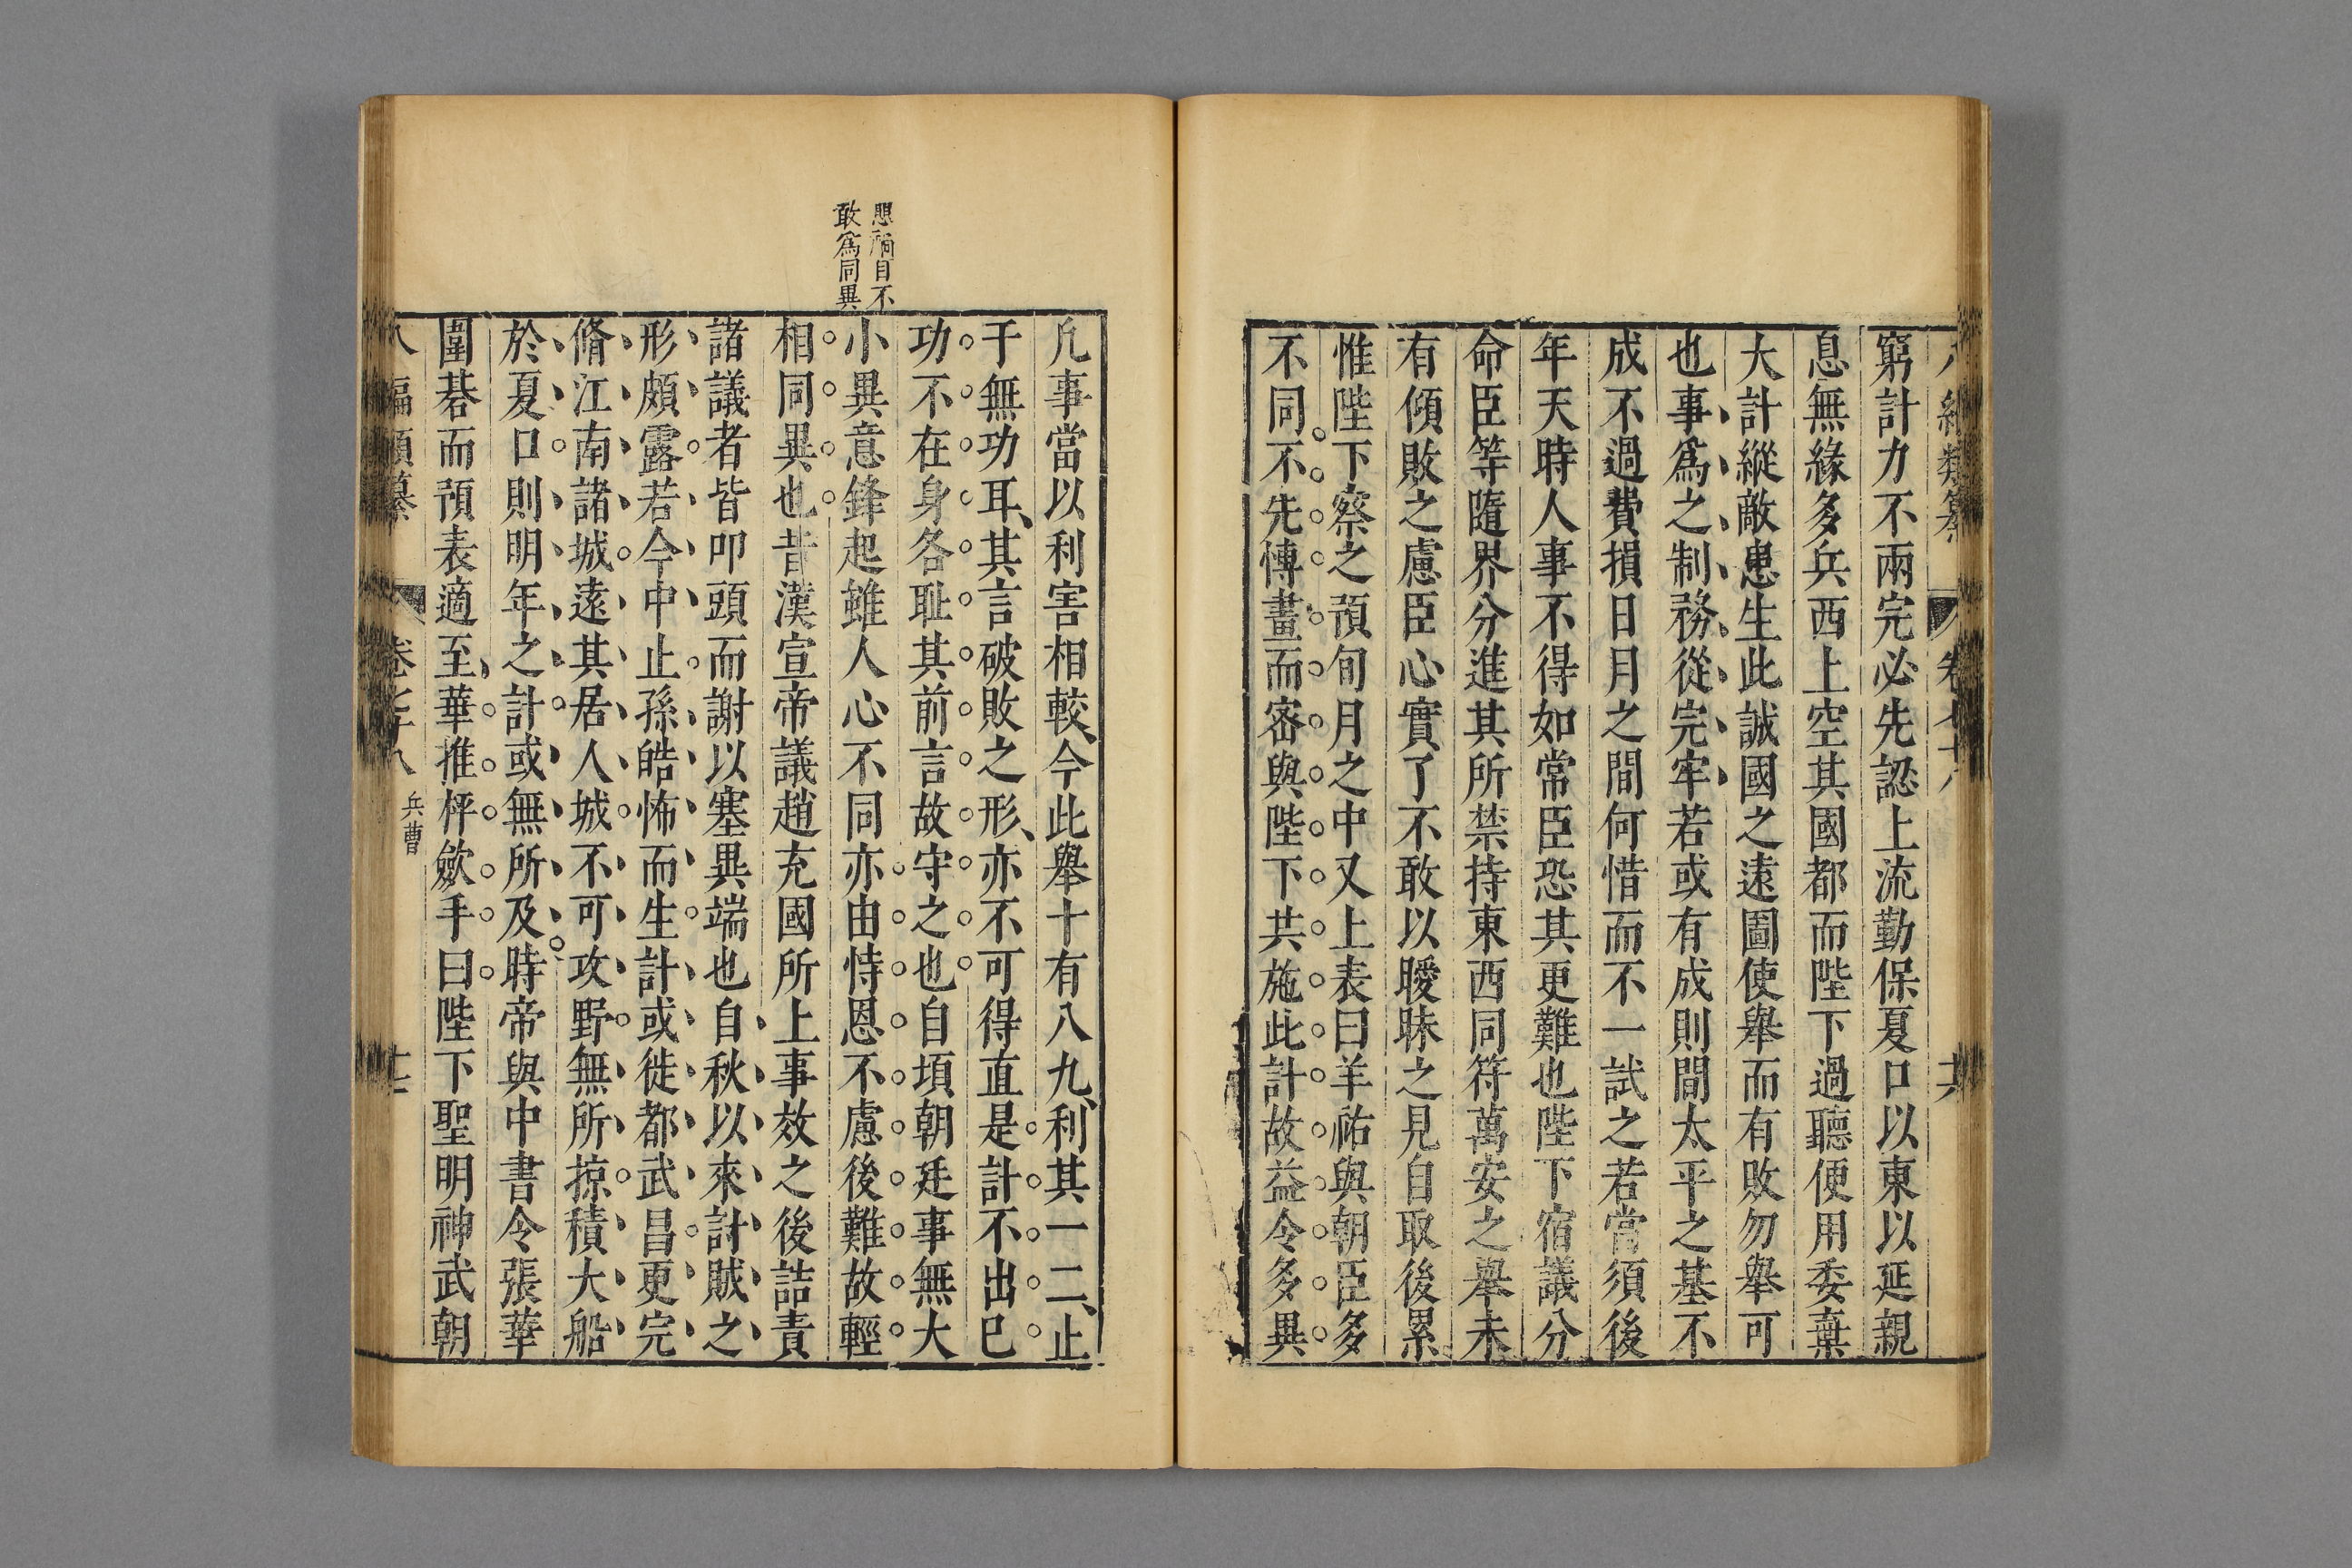 窮計力不兩完必先認上流勤保夏口以東以延親
息無緣多兵西上空其國都而陛下過聽便用委棄
大計縱敵患生此誠國之遠圖使舉而有敗勿舉可
也事爲之制務從完牢若或有成則開太平之基不
成不過費損日月之間何惜而不一試之若當須後
年天時人事不得如常臣恐其更難也陛下宿議分
命臣等隨界分進其所禁持東西同符萬安之舉未
有傾敗之慮臣心實了不敢以曖昧之見自取後累
惟陛下察之預旬月之中又上表曰羊祜與朝臣多
不同不先愽畫而宻與陛下共施此計故益令多異
凡事當以利害相較今此舉十有八九利其一二止
于無功耳其言破敗之形亦不可得直是計不出已
功不在身各耻其前言故守之也自頃朝廷事無大
小異意鋒起雖人心不同亦由恃恩不慮後難故輕
相同異也昔漢宣帝議趙充國所上事效之後詰責
諸議者皆叩頭而謝以塞異端也自秋以來討賊之
形頗露若今中止孫皓怖而生計或徙都武昌更完
脩江南諸城遠其居人城不可攻野無所掠積大船
於夏口則明年之計或無所及時帝與中書令張華
圍碁而預表適至華推枰歛手曰陛下聖明神武朝
敢爲同異
卷七十八
兵曹